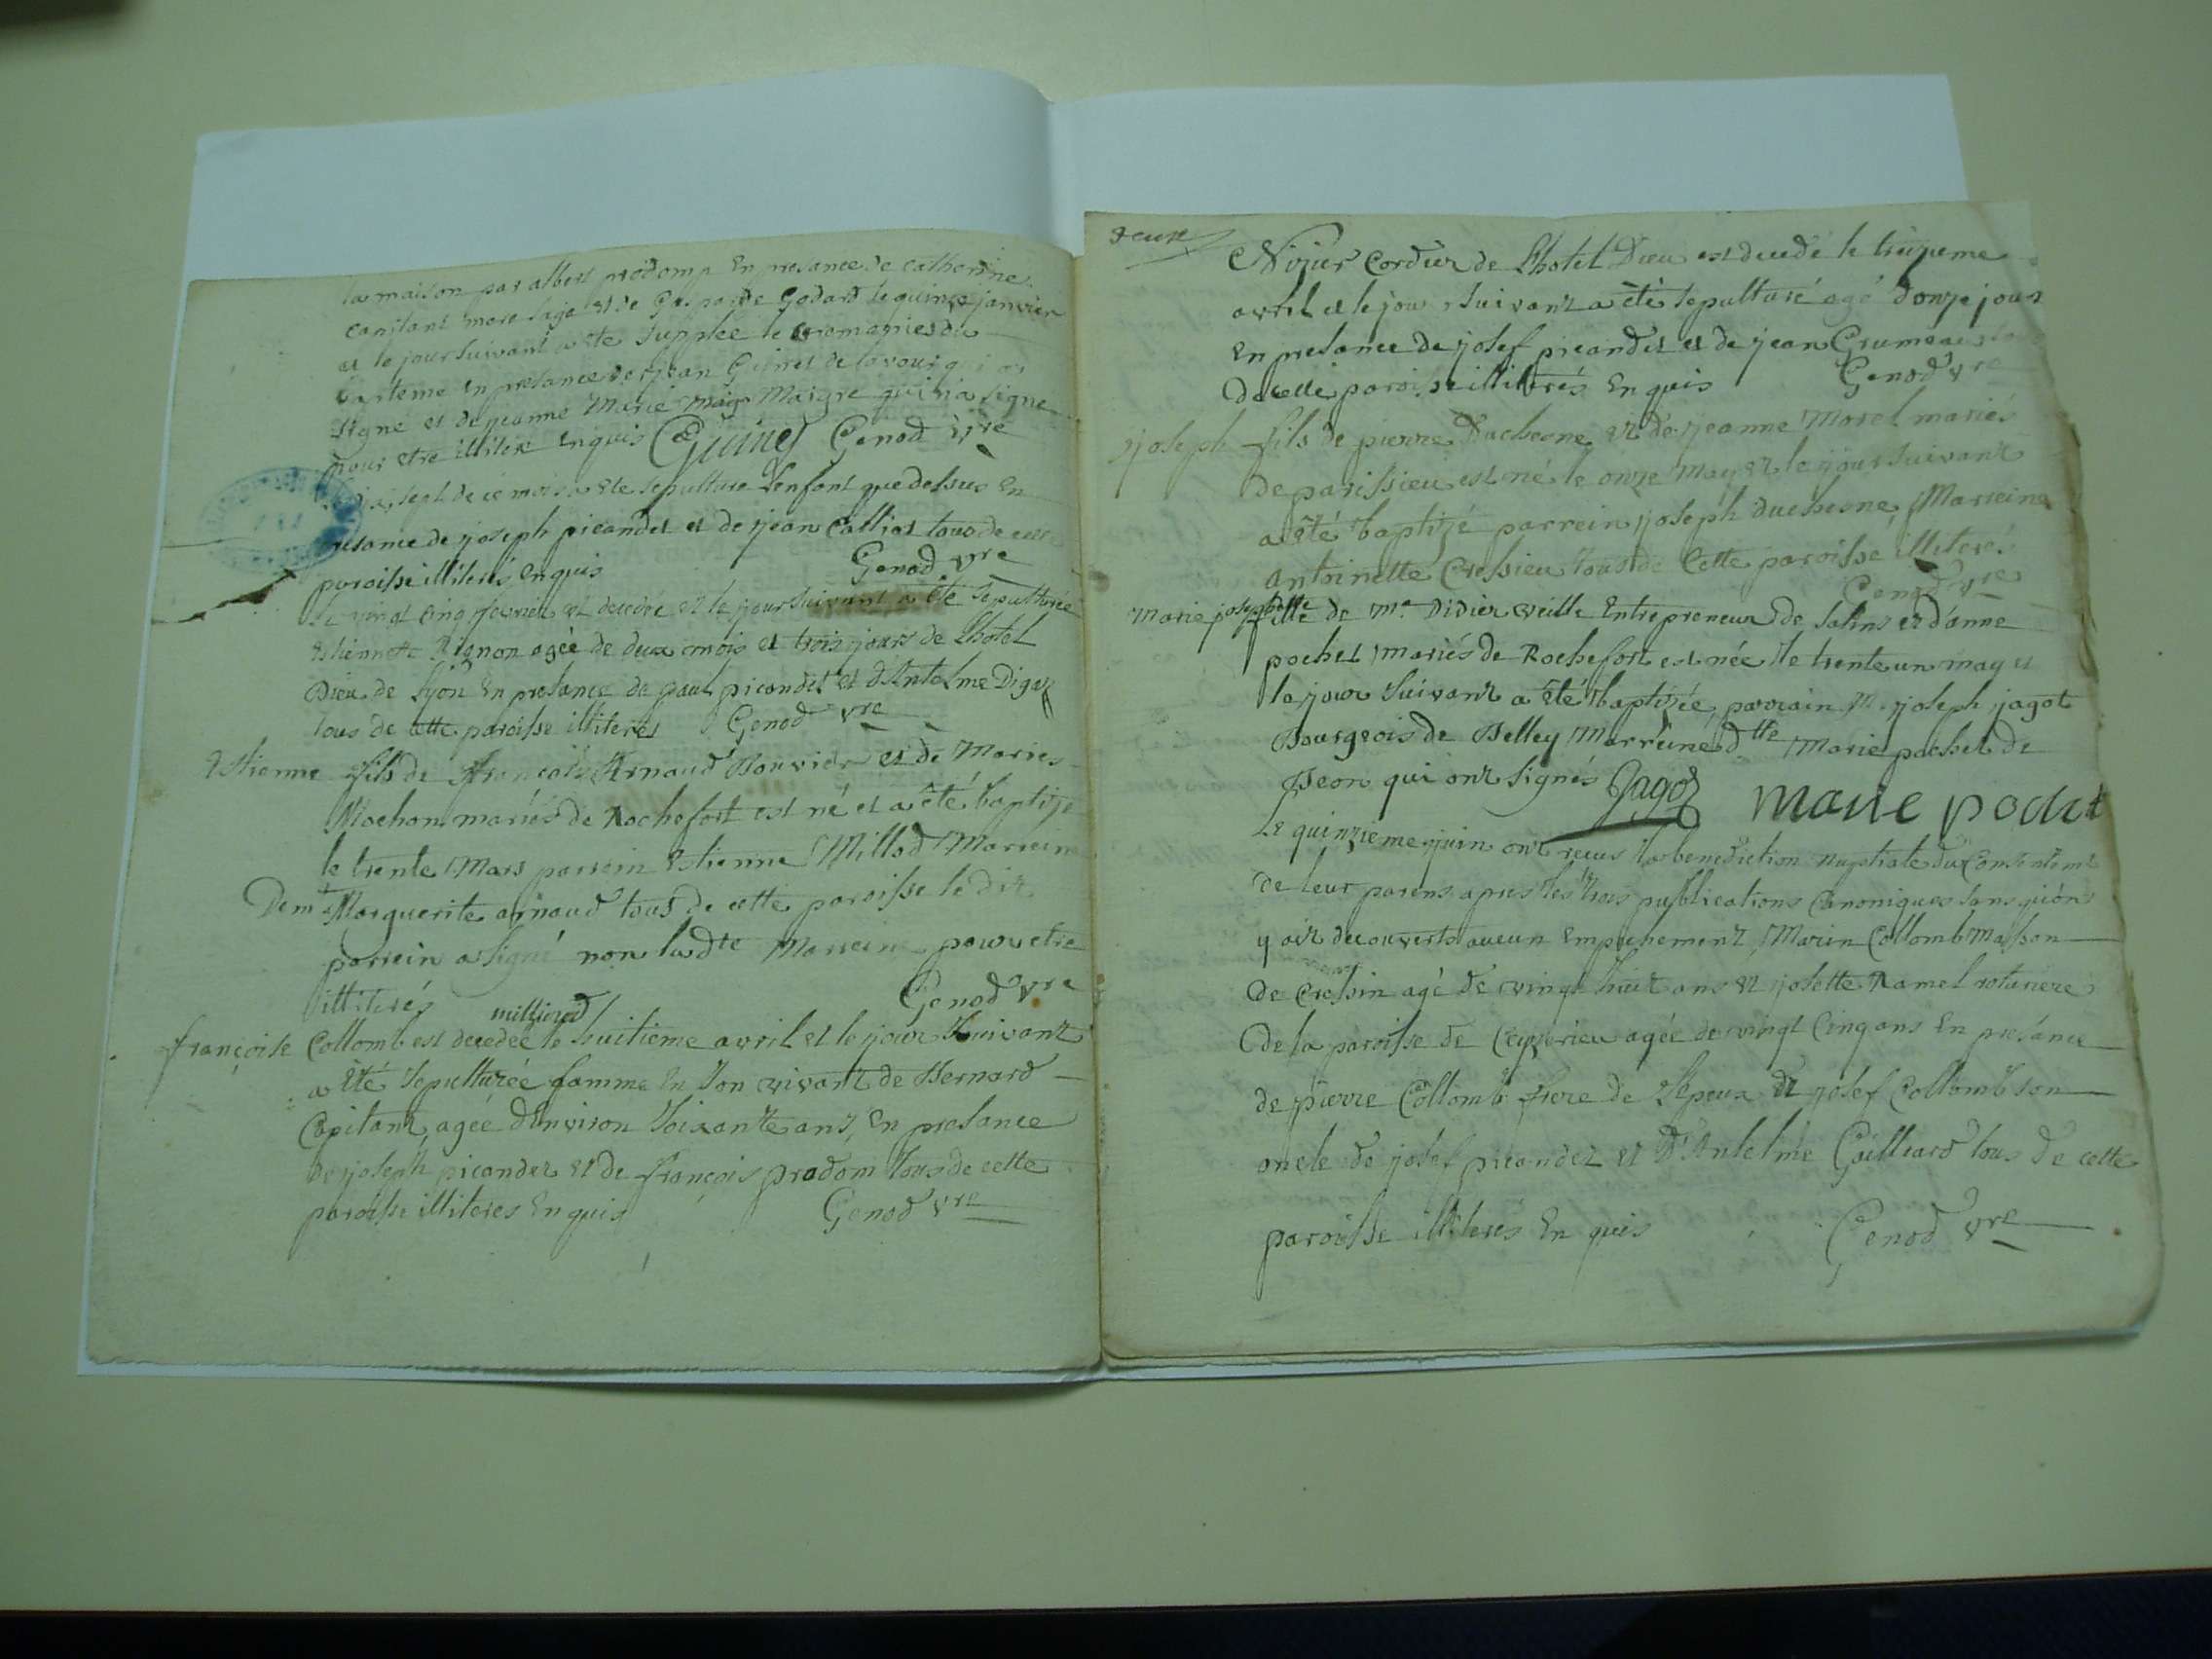 la maison par albert prodomp En presance de catherine
capitant mere sage et de Gasparde Godard le quinze janvier
et le jour suivant a ete supplee le ceremonies du
barteme En presance de jean Guinet de lavour qui a
signe et de jeanne Marie Maigre qui n'a signe
pour etre illitere Enquis Guinet Genod vre
sept de ce mois a ete sepulturé L'enfant que dessus En
presance de joseph picandet et de jean Calliat tous de cette
paroisse illiterés Enquis Genod vre
Le vingt cinq fevrier est decedée et le jour suivant a ète sepulturée
Estiennette agèe de deux mois et trois jours de Lhotel
Dieu de Lyon En presance de paul picandet et d'Antelme Digaz
tous de cette paroisse illiterés Genod vre
Estienne fils de François Arnaud Bouvier et de Maries
Mochon mariés de Rochefort est né et a èté baptizé
le trente Mars parrein Estienne Milliod Marreine
Demlle Marguerite arnaud tous de cette paroisse le dit
parrein a signé non ladte Marreine pour etre
illiterés milliod Genod vre
françoise Collomb est decedée le huitieme avril et le jour Suivant
a Eté Sepulturée famme En son vivant de Bernard
Capitant, agée d'Environ Soixante ans, En presance
de joseph picandet et de françois prodom tous de cette
paroisse illiteres Enquis Genod vre
Cordier de Lhotel Dieu est decedé le treizieme
avril et le jour suivant a èté sepulturé agé d'onze jours
En presance de josef picandet et de jean Grumeau
De cette paroisse illiterés Enquis Genod vre
joseph fils de pierre Duchesne et de jeanne Morel mariés
de parissieu est né le onze May et le jour suivant
a èté baptizé parrein joseph duchesne, Marreine
Antoinette Cressieu tous de Cette paroisse illiterés
Genod vre
Marie josephette fille de Me Didier veille Entrepreneur de Salins et d'anne
pochet mariés de Rochefort est née le trente un may et
le jour suivant a èté baptizée, parrain Mr joseph jagot
Bourgeois de Belley Marreine dlle Marie pochet de
Peon qui ont signés Jagot marie pochet
Le quinzieme juin ont recus la benediction nuptiale du Consentemt
de leur parens apres les trois publications Canoniques sans qu'on
y ait decouverts aucun Empechement, Marin Collomb Masson
De Cressin agé de vingt huit ans et josette Ramel roturiere
De la paroisse de Ceyzerieu agée de vingt Cinq ans En presance
de pierre Collomb frere de Lepoux et josef Collomb son
oncle de josef picandet et d'Antelme Gailliard tous de cette
paroisse illiterés Enquis Genod vre